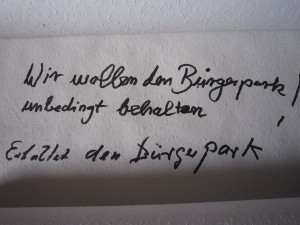 Wir wollen den Bürgerpark
unbedingt behalten!
Erhaltet den Bürgerpark